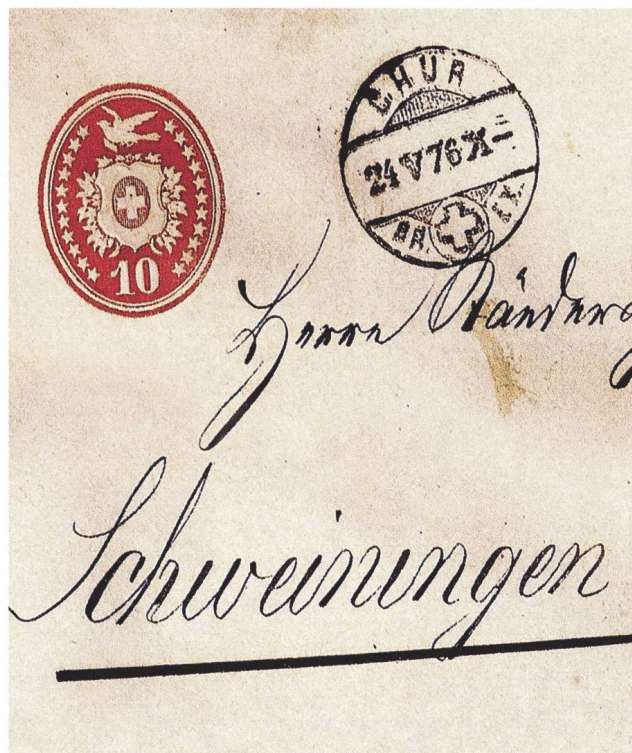 10
CHUR
24 V 76 X-
BR. EX.
Herrn
Schweiningen